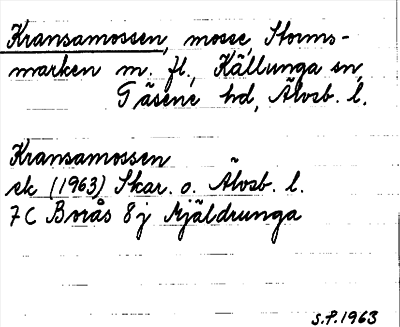 Kransamossen, mosse, Storms-
marken m. fl., Källunga sn,
Gäsene hd, Älvsb. l.
Kransamossen
ek (1963) Skar. o. Älvsb. l.
7C Borås 8j Mjäldrunga
S.P. 1963